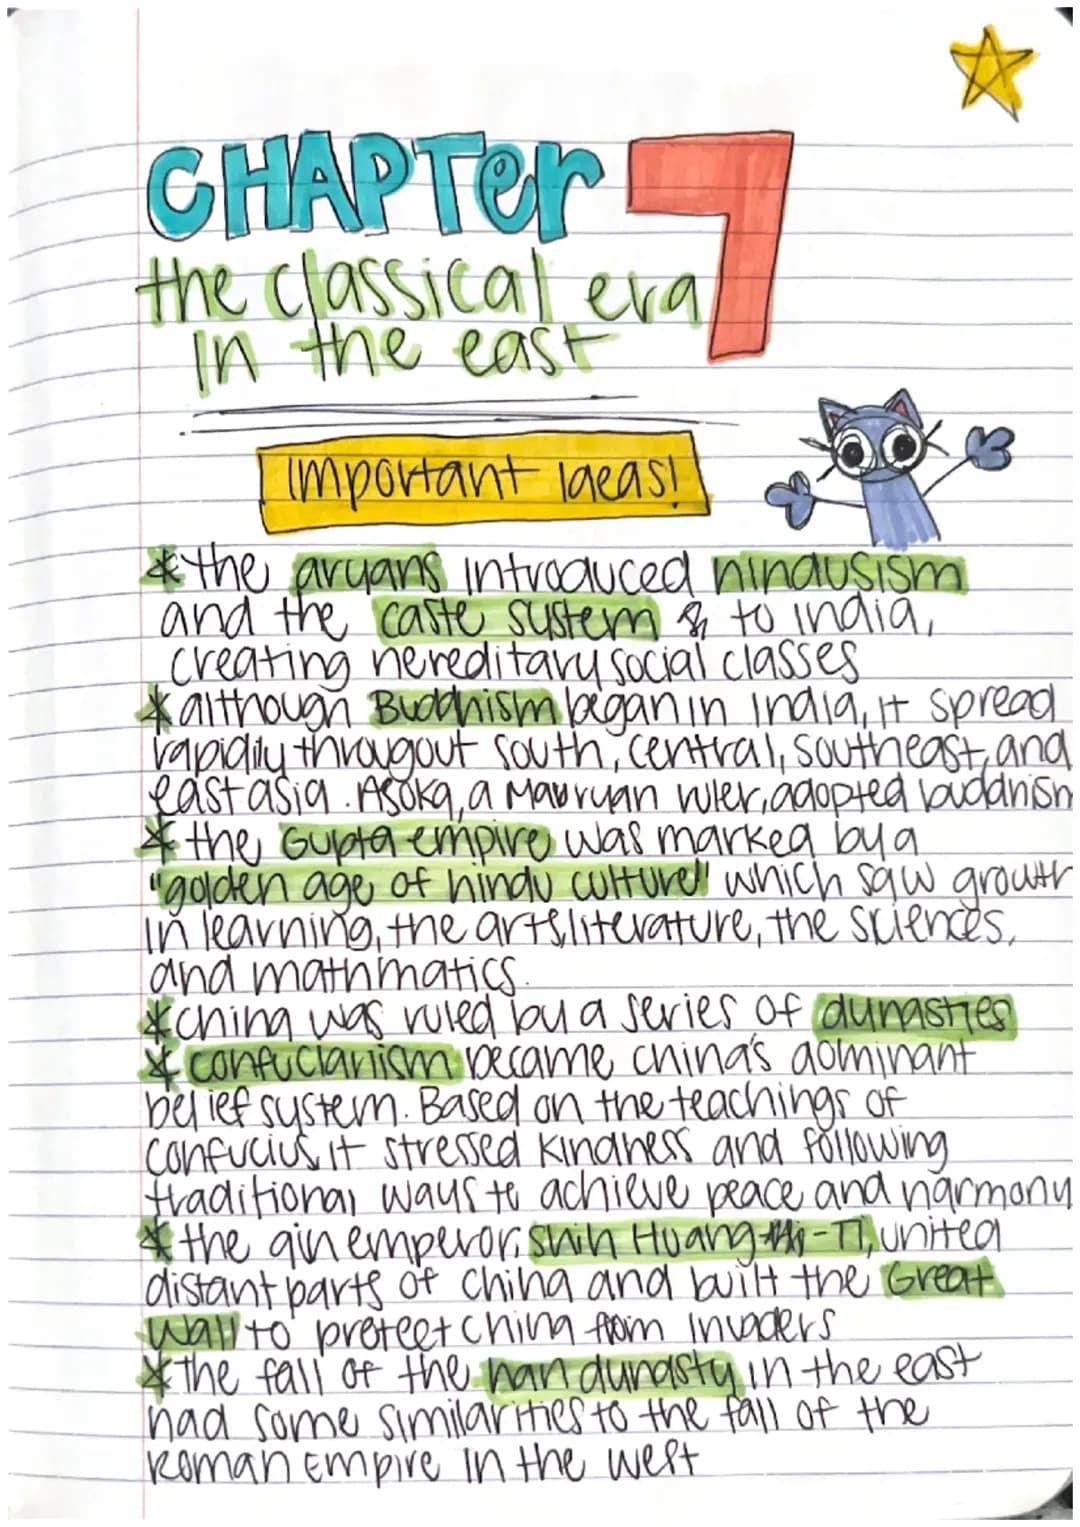 CHAPTer 7
the classical era
In the east
Important Ideas!
*the aryans introduced hindusism
and the caste system & to india,
creating hereditary social classes
*although Buddhism began in India, it spread
rapidily througout south, central, southeast, and
east asia. Asoka, a Mauryan ruler, adopted buddhism
* the Gupta empire was marked by a
"golden age of hindu culture" which saw growth
in learning, the arts, literature, the sciences,
and mathmatics.
*china was ruled by a series of dynasties
* confucianiism became china's dominant
belief system. Based on the teachings of
confucius, it stressed kindness and following
traditional ways to achieve peace and harmony
* the qin emperor, Shih Huang-Ti, united
distant parts of china and built the Great
Wall to protect china from invaders
*the fall of the han dynasty in the east
had some similarities to the fall of the
Roman Empire in the west